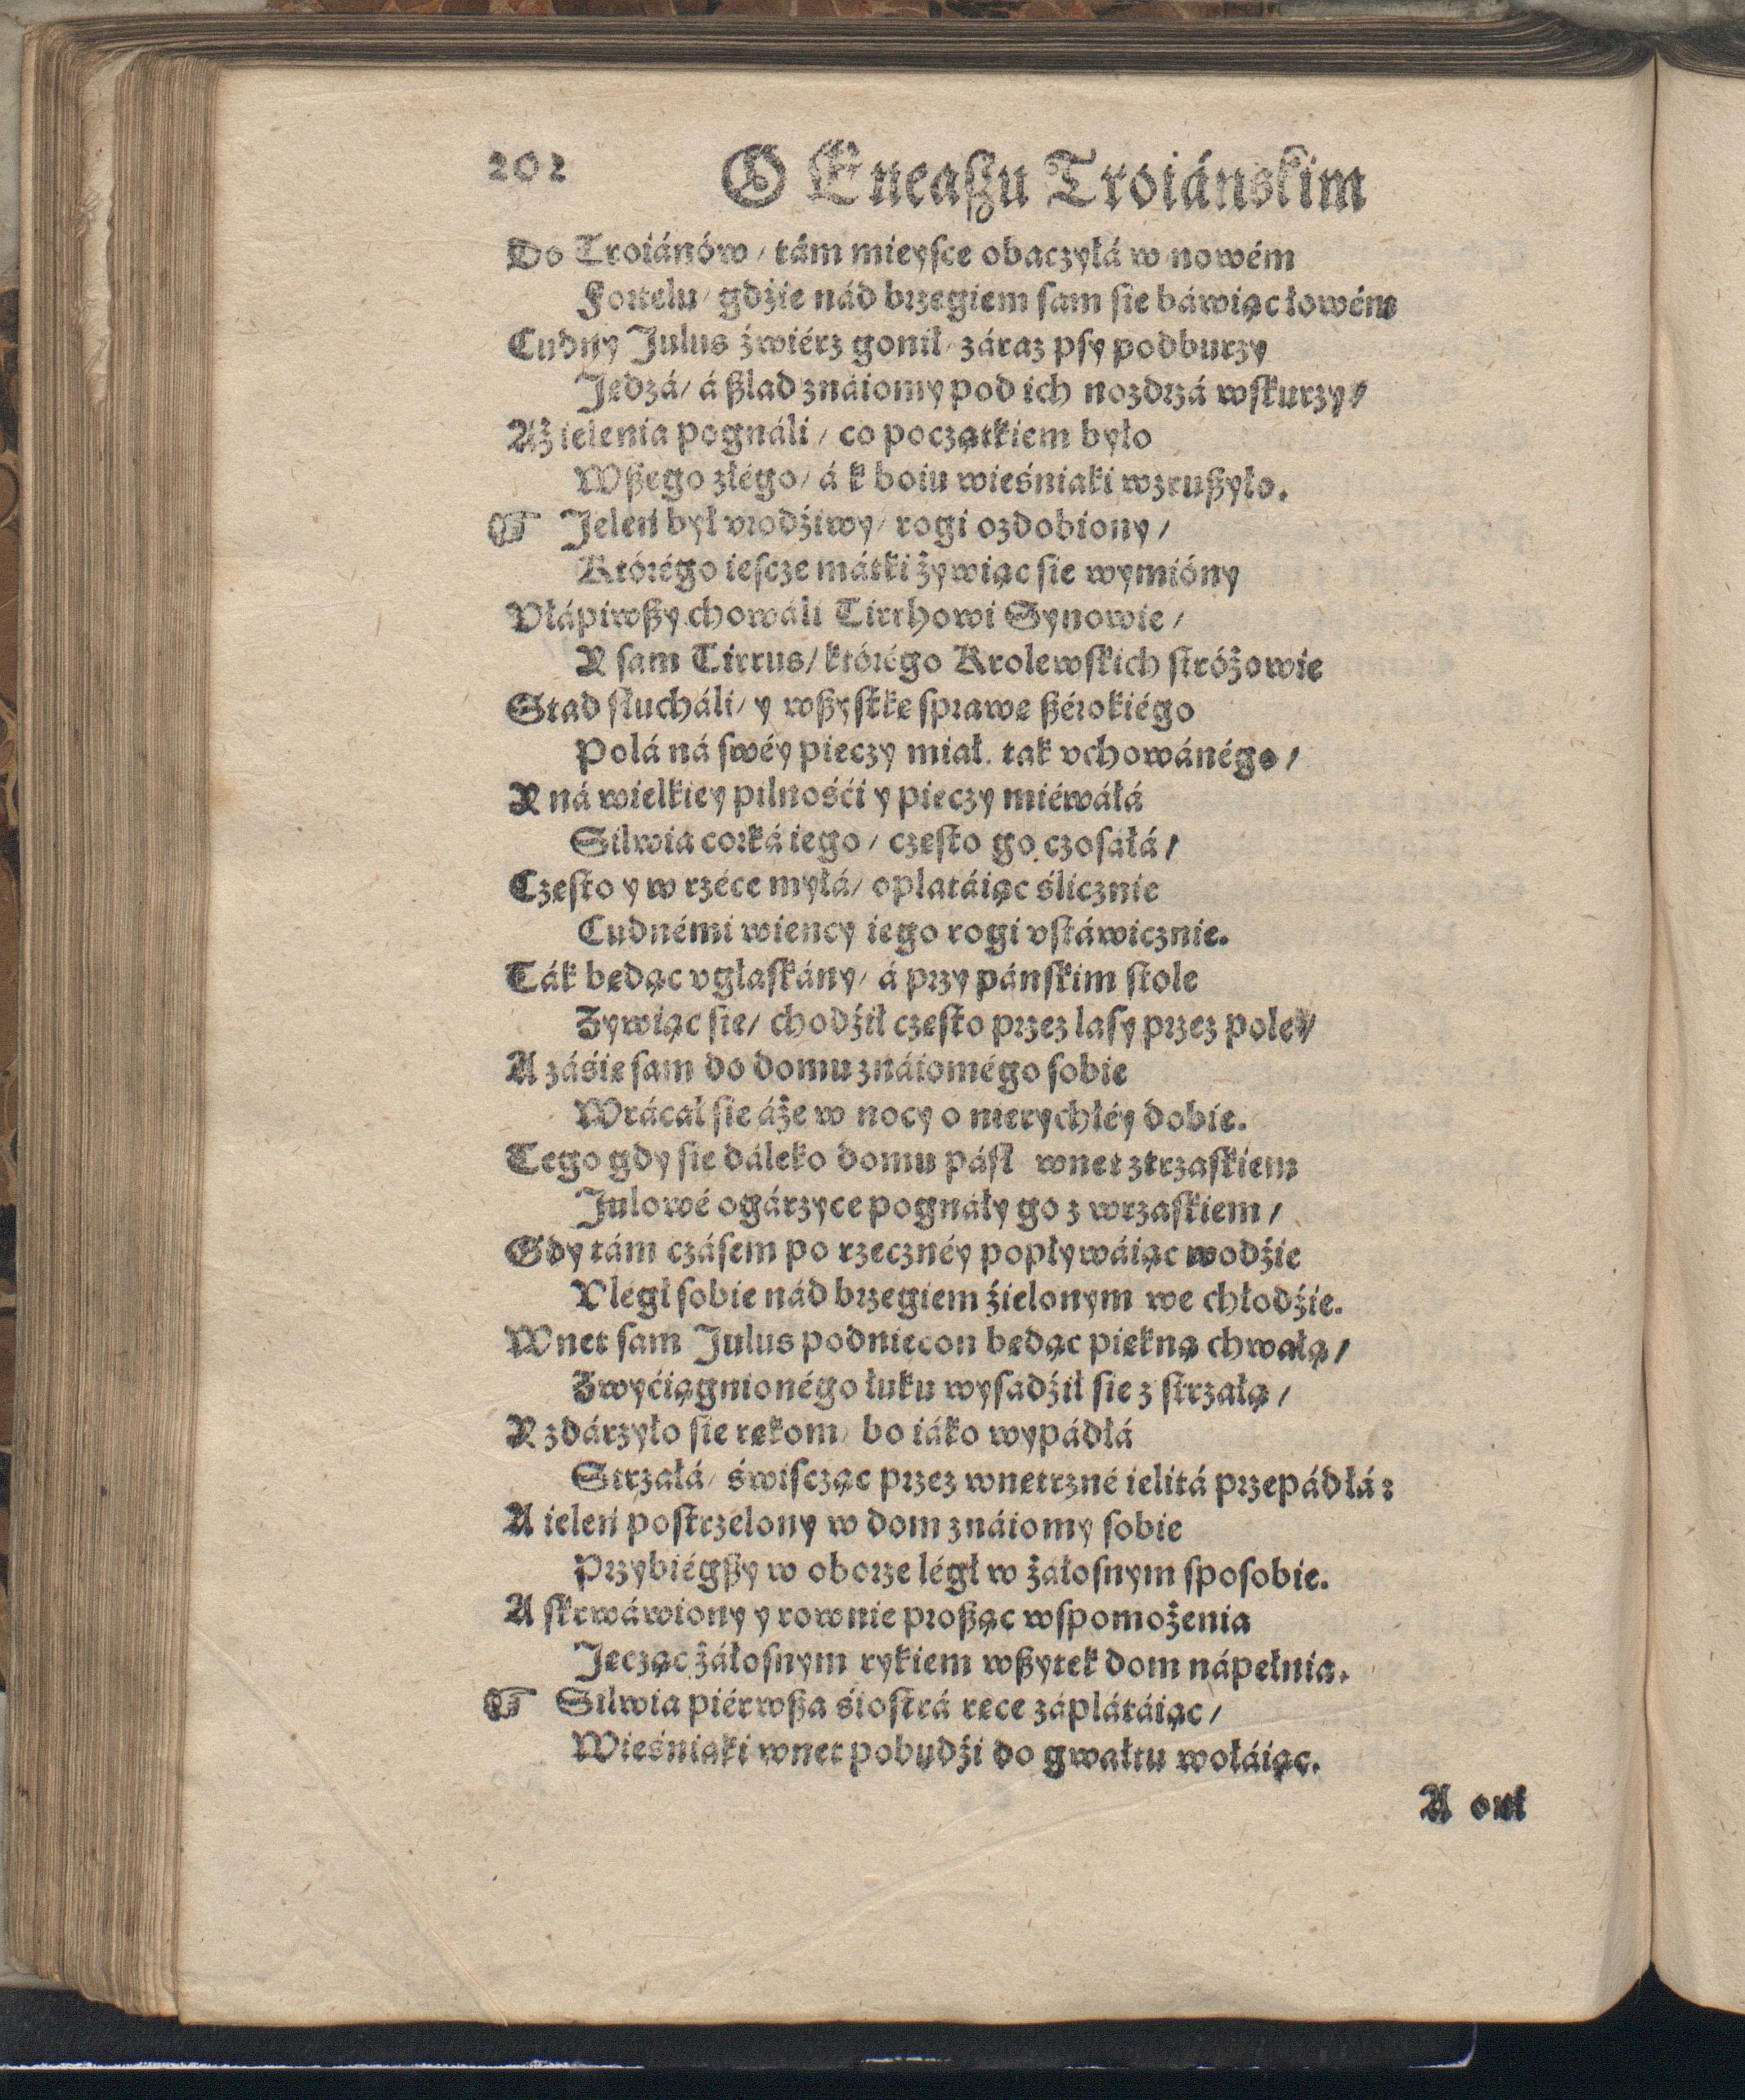 202 O Eneaſzu Troiánskim
Do Troiánów / tám mieyſce obaczyłá w nowém
Fortelu / gdźie nád brzegiem ſam ſie báwiąc łowém
Cudny Julus źwiérz gonił / záraz pſy podburzy
Jedzá / á ßlad znáiomy pod ich nozdrzá wſkurzy /
Aż ielenia pognáli / co początkiem było
Wßego złégo / á k boiu wieśniaki wzrußyło.
☞ Jeleń był vrodźiwy / rogi ozdobiony /
Którégo ieſcze mátki żywiąc ſie wymióny
Vłápiwßy chowáli Tirrhowi Synowie /
Y ſam Tirrus / którégo Krolewſkich ſtróżowie
Stad ſłucháli / y wßyſtkę ſprawę ßérokiégo
Polá ná ſwéy pieczy miał. tak vchowánégo /
Y ná wielkiey pilnośći y pieczy miéwáłá
Silwia corká iego / często go czoſáłá /
Często y w rzéce myłá / oplatáiąc ślicznie
Cudnémi wiency iego rogi vſtáwicznie.
Ták będąc vgłaſkány / á przy pánſkim ſtole
Zywiąc ſie / chodźił często przez laſy przez pole /
A záśie ſam do domu znáiomégo ſobie
Wrácał ſie áże w nocy o nierychłéy dobie.
Tego gdy ſie dáleko domu páſł wnet z trzaſkiem
Julowé ogárzyce pognáły go z wrzaſkiem /
Gdy tám czáſem po rzecznéy popływáiąc wodźie
Vlégł ſobie nád brzegiem źielonym we chłodźie.
Wnet ſam Julus podniecon będąc piękną chwałą /
Zwyćiągnionégo łuku wyſadźił ſie z ſtrzałą /
Y zdárzyło ſie rękom / bo iáko wypádłá
Strzáłá / świſcząc przez wnętrzné ielitá przepádłá:
A ieleń poſtrzelony w dom znáiomy ſobie
Przybiégßy w oborze légł w żáłoſnym ſpoſobie.
A ſkrwáwiony y rownie proßąc wſpomożenia
Jęcząc żáłoſnym rykiem wßytek dom nápełnia.
☞ Silwia piérwßa śioſtrá ręce záplátáiąc /
Wieśniaki wnet pobudźi do gwałtu wołáiąc.
A oni